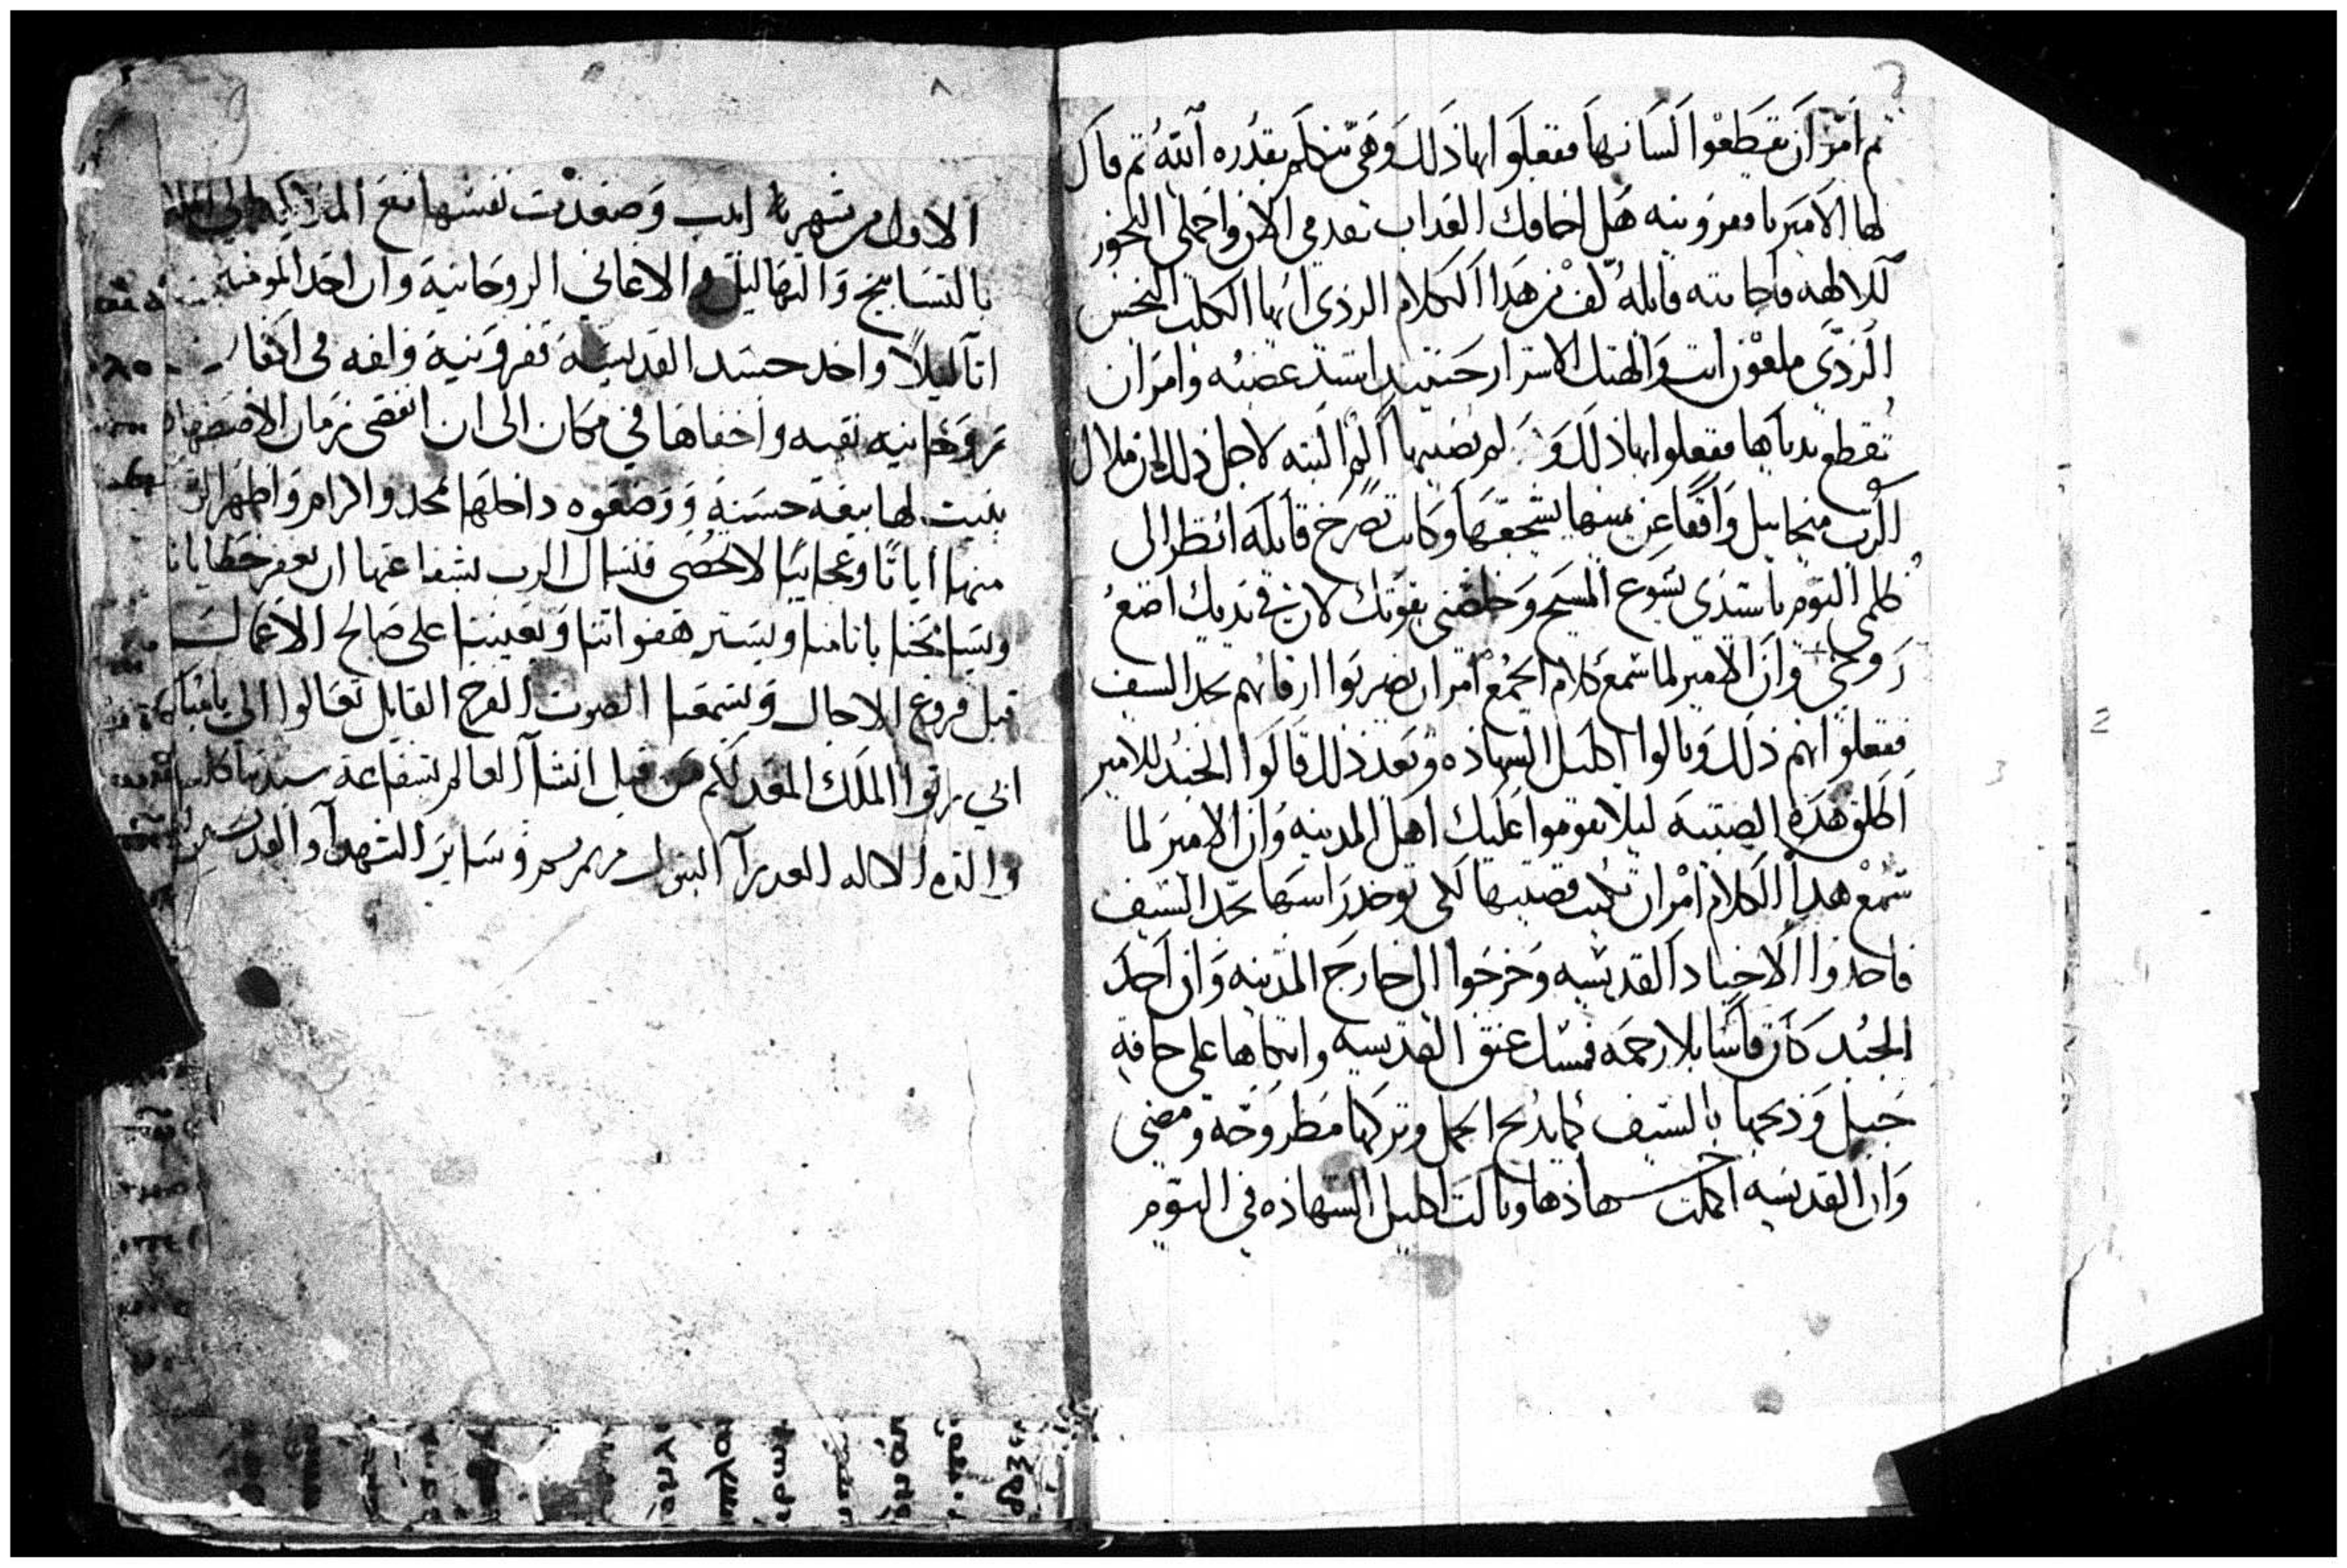 ثم امر ان يقطعوا لسانها ففعلوا بها ذلك وهي تتكلم بقدره الله ثم قال
لها الامير يا ففرونيه هل اخافك العداب تقدمي الان واحملي البخور
للالهه فاجابته قايله كف عن هدا الكلام الردي ايها الكلب النجس
الردي ملعون انت والهتك الاشرار حينيد اشتد غضبه وامر ان
تقطع يدياها ففعلوا بها ذلك و لم يصيبها الم البته لاجل ذلك لان ملاك
الرب ميخاييل واقفا عن يمينها يشجعها وكانت تصرخ قايله انظر الى
ظلمي اليوم يا سيدي يسوع المسيح وخلصني بقوتك لان في يديك اضع
روحي وان الامير لما سمع كلام الجمع امر ان يضربوا ارقابهم بحد السيف
ففعلوا بهم ذلك ونالوا اكليل الشهاده وبعد ذلك قالوا الجند للامير
اطلق هده الصبيه ليلا يقوموا عليك اهل المدينه وان الامير لما
سمع هدا الكلام امر ان تكتب قضيتها لكي توخد راسها بحد السيف
فاخدوا الاجناد القديسه وخرجوا الى خارج المدينه وان احد
الجند كان قاسيا بلا رحمه فمسك عنق القديسه واتكاها على حافة
جبل وذبحها بالسيف كما يدبح الحمل وتركها مطروحة ومضى
وان القديسه اكملت شهادها ونالت اكليل الشهاده في اليوم
٨
الاول من شهر ابيب وصعدت نفسها مع الملايكه الى
بالتسابيح والتهاليل والاغاني الروحانية وان احد المومنين
اتا ليلا واخد جسد القديسة ففرونية ولفه في اكفان
روحانيه نقيه واخفاها في مكان الى ان انقضى زمان الاضطهاد
بنيت لها بيعة حسنة ووضعوه داخلها بمجد واكرام واظهر الرب
منها اياتا وعجايبا لا تحصى فنسال الرب بشفاعتها ان يغفر خطايانا
ويسامحنا باتامنا ويستر هفواتنا ويعيننا على صالح الاعمال
قبل فروغ الاجال ويسمعنا الصوت الفرح القايل تعالوا الي يا مباركي
ابي رتوا الملك المعد لكم من قبل انشا العالم بشفاعة سيدتنا كلنا
والدة الاله العدرا البتول مرتمريم وساير الشهدا والقديسين